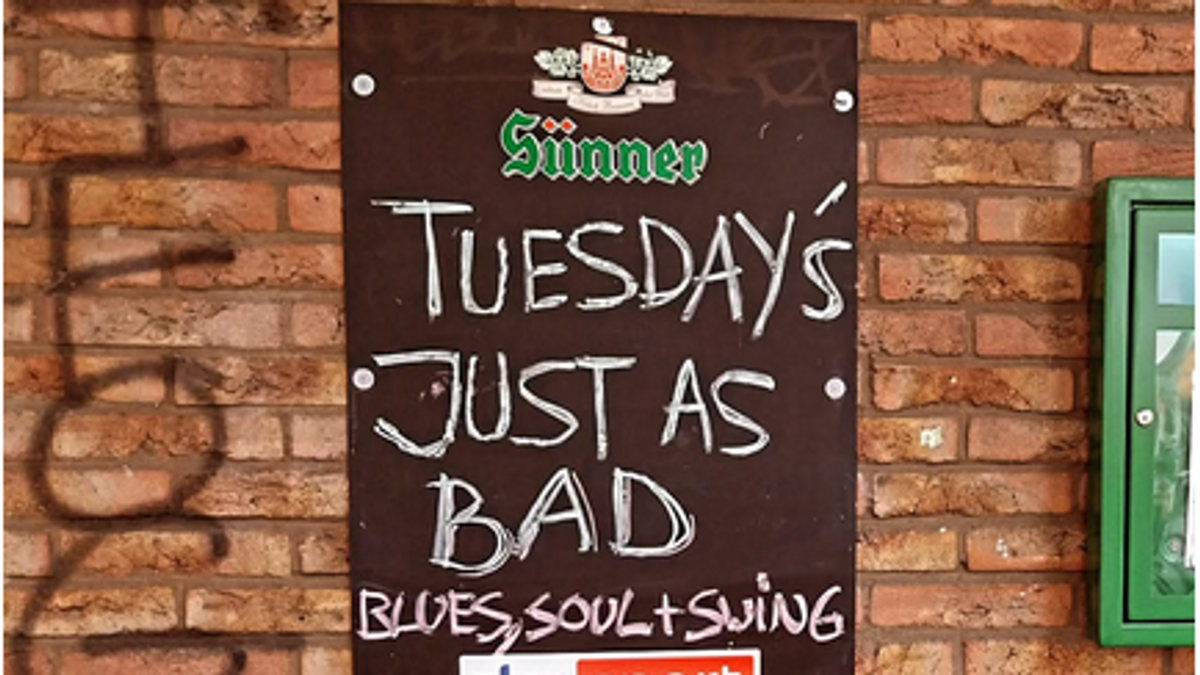 Sünner
TUESDAY'S
JUST AS
BAD
BLUES, SOUL + SWING